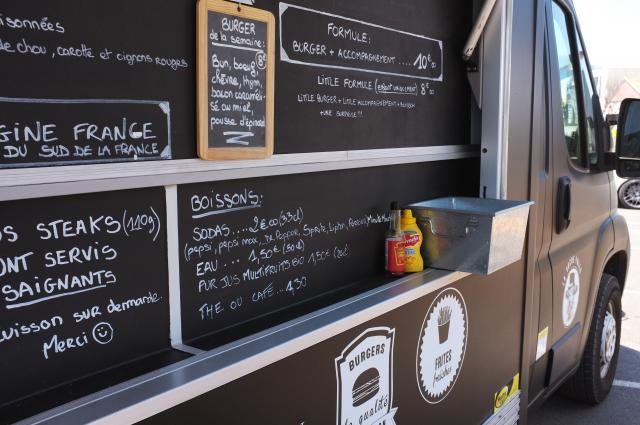 isonnées
de chou, carotte et oignons rouges
GINE FRANCE
DU SUD DE LA FRANCE
BURGER
de la semaine:
8€
Bun, boeuf,
chèvre, thym,
bacon caraméli-
sé au miel,
pousse d'épinard
FORMULE:
BURGER + ACCOMPAGNEMENT .... 10€
LITTLE FORMULE (ENFANT UNIQUEMENT) 8€
LITTLE BURGER + LITTLE ACCOMPAGNEMENT + BOISSON
+ UNE SURPRISE!!
OS STEAKS (110g)
ONT SERVIS
SAIGNANTS
Cuisson sur demande.
Merci
BOISSONS:
SODAS .... 2€00 (33cl)
(pepsi, pepsi max, Dr Pepper, Sprite, Lipton,
EAU ... 1,50€ (50cl)
PUR JUS MULTIFRUITS BIO 1,50€
THE OU CAFE ... 1,30
BURGERS
de qualité
FRITES
fraîches